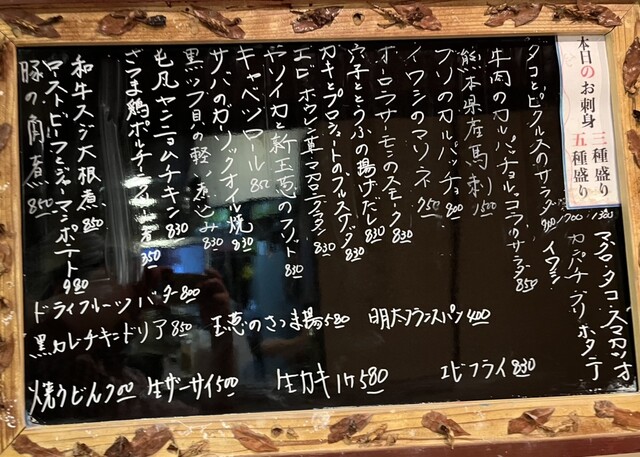 本日のお刺身
三種盛り
五種盛り
1300
1700
マグロ・タコ・スマガツオ
カンパチ・ブリ・ホタテ
イワシ
タコとピクルスのサラダ 930
牛肉のカルパッチョ、コブ風サラダ 850
熊本県産馬刺 1500
ブリのカルパッチョ 900
イワシのマリネ 750
オーロラサーモンのスモーク 830
穴子ととうふの揚げだし 830
カキとプロシュートのブルスケッタ 830
エビ・ホウレン草・マカロニグラタン 830
ヤリイカと新玉葱のフリット 830
キャベツロール 850
サバのガーリックオイル焼 830
黒ツブ貝の軽い煮込み 830
もも肉ヤンニョムチキン 830
さつま鶏ポルチーニ 850
和牛スジ大根煮 850
ローストビーフとジャーマンポテト 980
豚の角煮 850
ドライフルーツバター 800
黒カレーチキンドリア 850
玉葱のさつま揚 580
明太フランスパン 400
焼うどん 700
生ザーサイ 500
生カキ1ケ 580
エビフライ 830